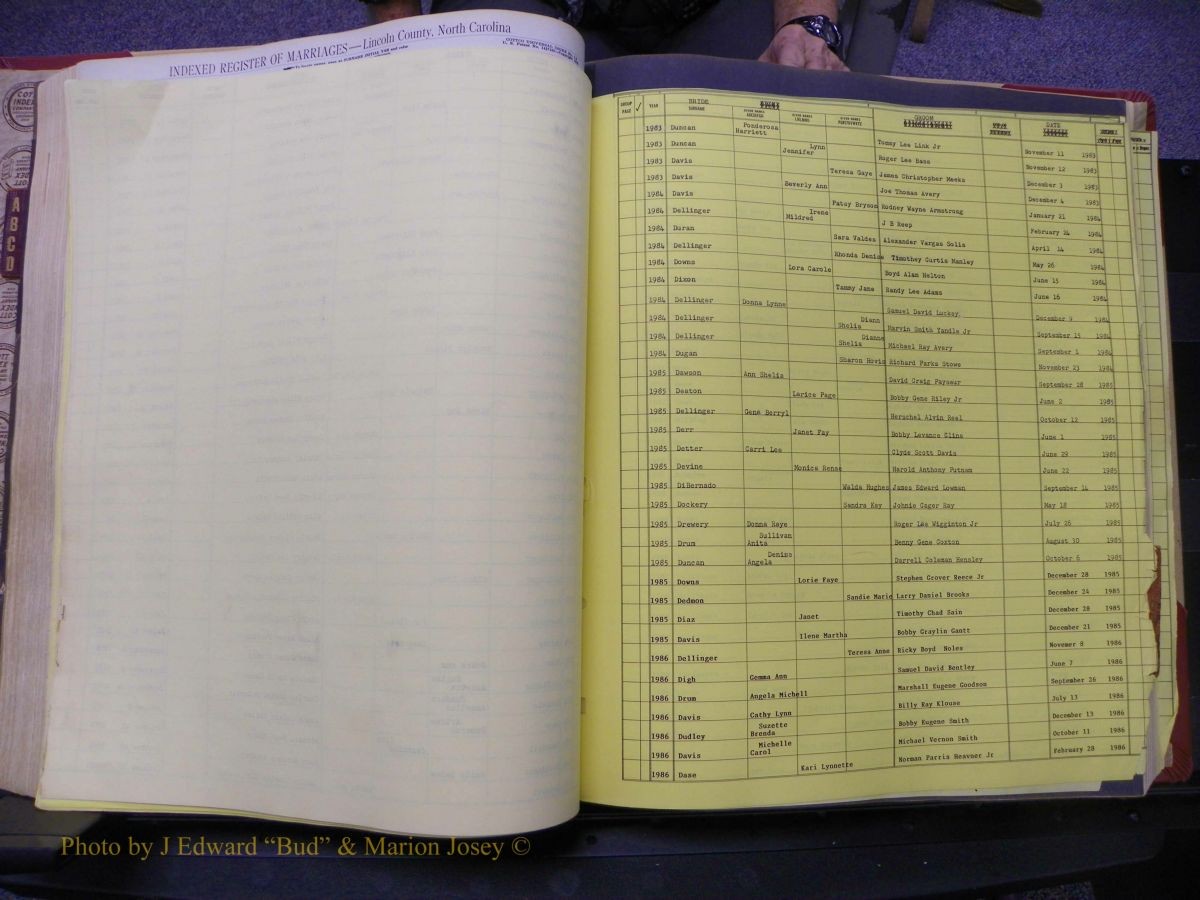 INDEXED REGISTER OF MARRIAGES—Lincoln County, North Carolina
A B C D
GROUP PAGE ✓ YEAR BRIDE SURNAME GIVEN NAMES ABCDEFGH GIVEN NAMES IJKLMNO GIVEN NAMES PQRSTUVWXYZ GROOM DATE
1983 Duncan Ponderosa Harriett Tommy Lee Link Jr November 11 1983
1983 Duncan Lynn Jennifer Roger Lee Bass November 12 1983
1983 Davis Teresa Gaye James Christopher Meeks December 3 1983
1983 Davis Beverly Ann Joe Thomas Avery December 4 1983
1984 Davis Patsy Bryson Rodney Wayne Armstrong January 21 1984
1984 Dellinger Irene Mildred J B Reep February 24 1984
1984 Duran Sara Valdes Alexander Vargas Solis April 14 1984
1984 Dellinger Rhonda Denise Timothey Curtis Manley May 26 1984
1984 Downs Lora Carole Boyd Alan Helton June 15 1984
1984 Dixon Tammy Jane Randy Lee Adams June 16 1984
1984 Dellinger Donna Lynne Samuel David Luckey December 9 1984
1984 Dellinger Diann Shelia Marvin Smith Yandle Jr September 15 1984
1984 Dellinger Dianne Shelia Michael Ray Avery September 1 1984
1984 Dugan Sharon Hovis Richard Parks Stowe November 23 1984
1985 Dawson Ann Shelia David Craig Payseur September 28 1985
1985 Deaton Larice Page Bobby Gene Riley Jr June 2 1985
1985 Dellinger Gene Berryl Herschel Alvin Reel October 12 1985
1985 Derr Janet Fay Bobby Levance Cline June 1 1985
1985 Detter Carri Lee Clyde Scott Davis June 29 1985
1985 Devine Monica Renae Harold Anthony Putnam June 22 1985
1985 DiBernado Walda Hughes James Edward Lowman September 14 1985
1985 Dockery Sandra Kay Johnie Cager Ray May 18 1985
1985 Drewery Donna Raye Roger Lee Wigginton Jr July 26 1985
1985 Drum Sullivan Anita Benny Gene Coxton August 30 1985
1985 Duncan Denise Angela Darrell Coleman Hensley October 6 1985
1985 Downs Lorie Faye Stephen Grover Reece Jr December 28 1985
1985 Dedmon Sandie Marie Larry Daniel Brooks December 24 1985
1985 Diaz Janet Timothy Chad Sain December 28 1985
1985 Davis Ilene Martha Bobby Graylin Gantt December 21 1985
1986 Dellinger Teresa Anne Ricky Boyd Noles Novemer 8 1986
1986 Digh Gemma Ann Samuel David Bentley June 7 1986
1986 Drum Angela Michell Marshall Eugene Goodson September 26 1986
1986 Davis Cathy Lynn Billy Ray Klouse July 13 1986
1986 Dudley Suzette Brenda Bobby Eugene Smith December 13 1986
1986 Davis Michelle Carol Michael Vernon Smith October 11 1986
1986 Dase Kari Lynnette Norman Parris Heavner Jr February 28 1986
Photo by J Edward “Bud” & Marion Josey ©